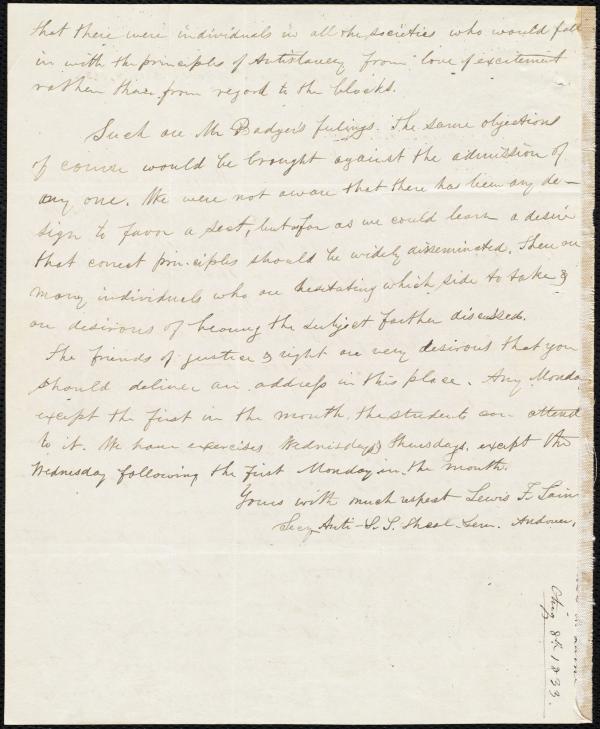 that there were individuals in all the societies who would fall
in with the principles of Antislavery from love of excitement
rather than from regard to the blacks.
Such are Mr Badger's feelings. The same objections
of course would be brought against the admission of
any one. We were not aware that there has been any de-
sign to favor a sect, but as far as we could learn a desire
that correct principles should be widely disseminated. There are
many individuals who are hesitating which side to take &
are desirous of hearing the subject farther discussed.
The friends of justice & right are very desirous that you
should deliver an address in this place. Any Monday
except the first in the month, the students can attend
to it. We have exercises Wednesdays & Thursdays, except the
Wednesday following the first Monday in the month.
Yours with much respect Lewis F. Lain
Secy Anti-S. S. Theol. Sem. Andover.
8th 1833.